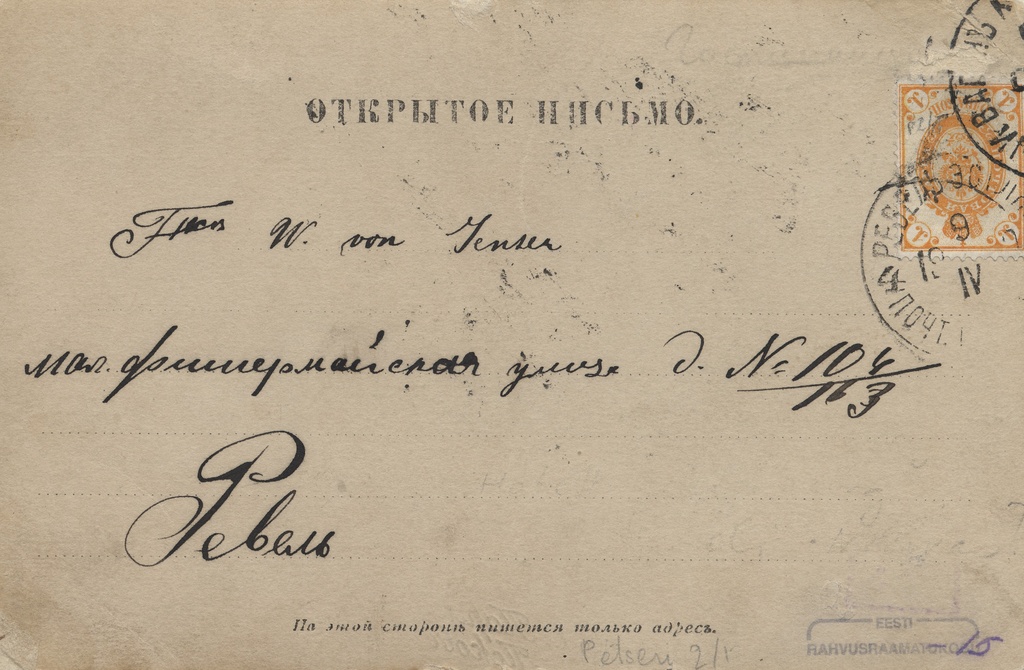 ОТКРЫТОЕ ПИСЬМО.
W. von Jensen
мал. фишермайская улица д. № 104/163
Ревель
На этой сторонѣ пишется только адресъ.
Petseri 2/1
EESTI
RAHVUSRAAMATUKOGU
15
РЕВЕЛЬ
9
IV
ПОЧТ